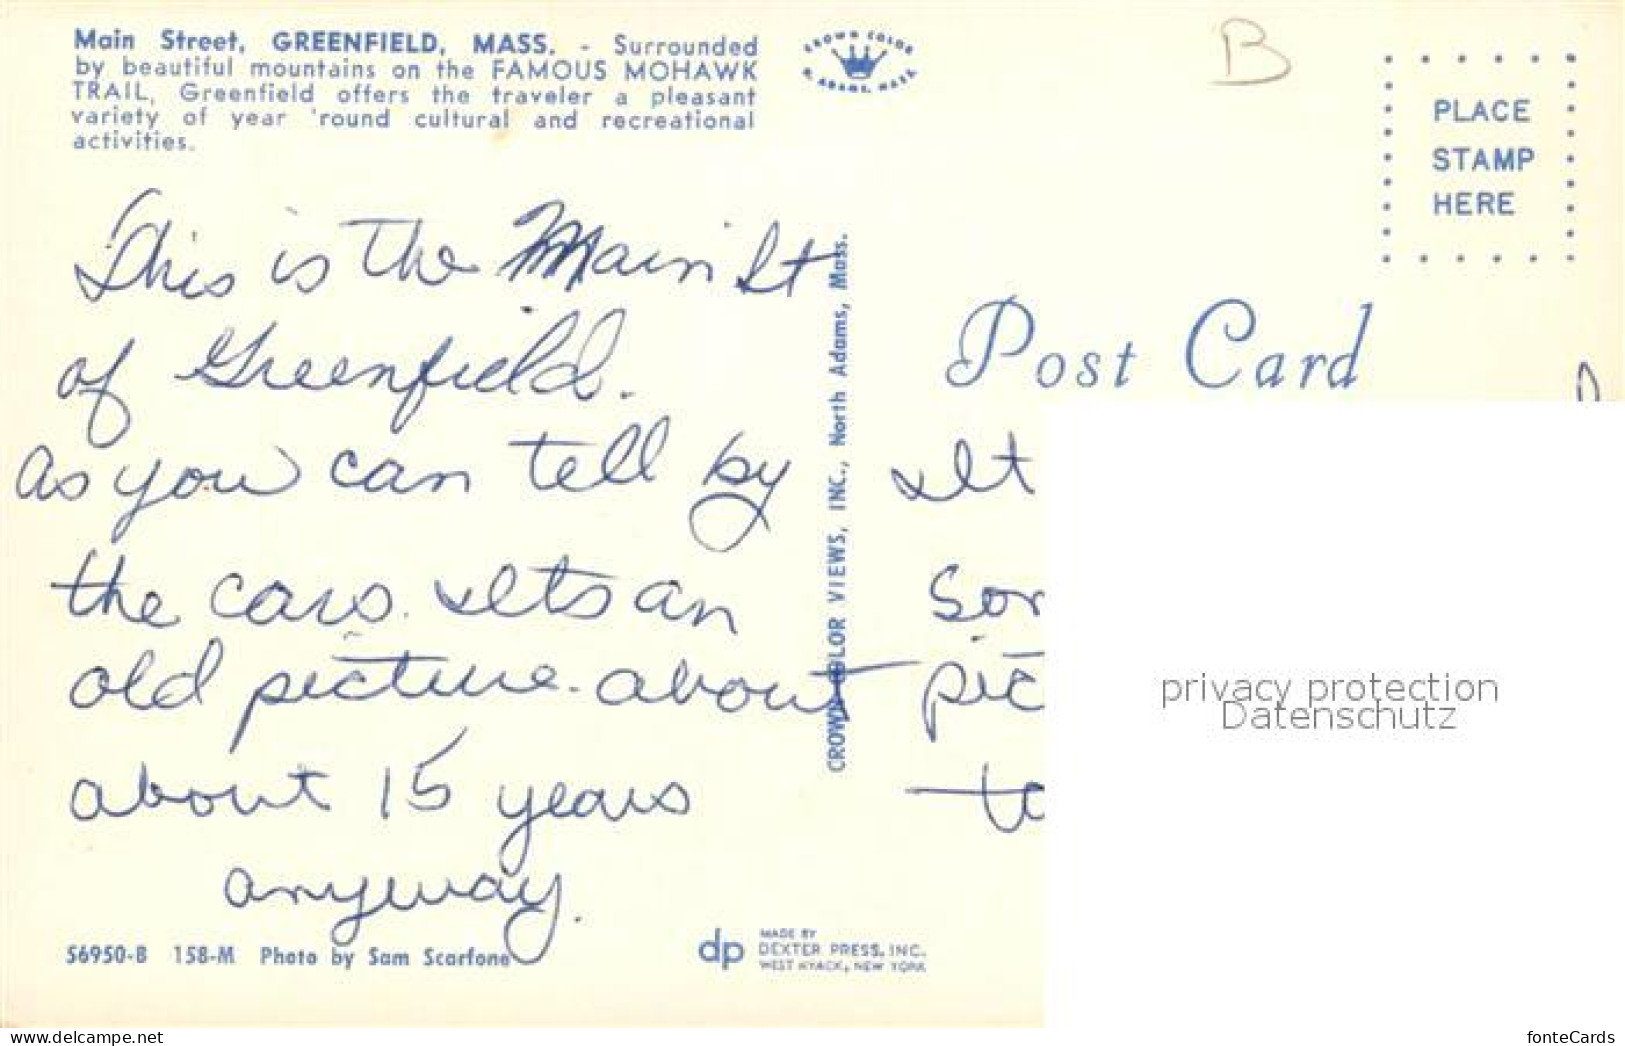 Main Street, GREENFIELD, MASS. - Surrounded
by beautiful mountains on the FAMOUS MOHAWK
TRAIL, Greenfield offers the traveler a pleasant
variety of year 'round cultural and recreational
activities.
CROWN COLOR
N. ADAMS, MASS.
B
PLACE
STAMP
HERE
This is the Main St
of Greenfield.
As you can tell by
the cars. Its an
old picture. about
about 15 years
anyway.
CROWN COLOR VIEWS, INC., North Adams, Mass.
Post Card
It
Som
pic
to
privacy protection
Datenschutz
56950-B 158-M Photo by Sam Scarfone
dp
MADE BY
DEXTER PRESS, INC.
WEST NYACK, NEW YORK
www.delcampe.net
fonteCards